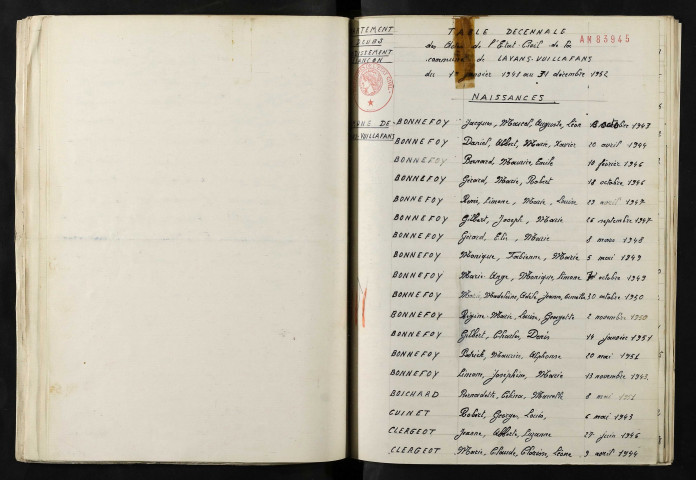 TABLE DECENNALE
AM83945
des Actes de l'Etat Civil de la
commune de LAVANS-VUILLAFANS
du 1er janvier 1941 au 31 décembre 1952
NAISSANCES
BONNEFOY Jacques, Marcel, Auguste, Léon octobre 1943
BONNEFOY Daniel, Albert, Marie, Xavier 20 avril 1944
BONNEFOY Bernard, Maurice, Emile 10 février 1946
BONNEFOY Gérard, Marie, Robert 18 octobre 1946
BONNEFOY Simone, Marie, Louise 23 avril 1947
BONNEFOY Gilbert, Joseph, Marie 26 septembre 1947
BONNEFOY Gérard, Elie, Marie 8 mars 1948
BONNEFOY Monique, Fabienne, Marie 5 mai 1949
BONNEFOY Marie-Ange, Monique, Simone octobre 1949
BONNEFOY Marie, Madeleine, Adèle, Jeanne, 30 octobre 1950
BONNEFOY Régine-Marie, Louise, Georgette 2 novembre 1950
BONNEFOY Gilbert, Charles, Denis 14 janvier 1951
BONNEFOY Patrick, Maurice, Alphonse 20 mai 1951
BONNEFOY Simone, Joséphine, Marie 13 novembre 1945
BOICHARD Bernadette, Célina, Marcelle 8 mai
CUINET Robert, Georges, Louis, 6 mai 1943
CLERGEOT Jeanne, Alberte, Suzanne 27 juin 1946
CLERGEOT Marie, Claude, Clarisse, Léone 9 avril 1944